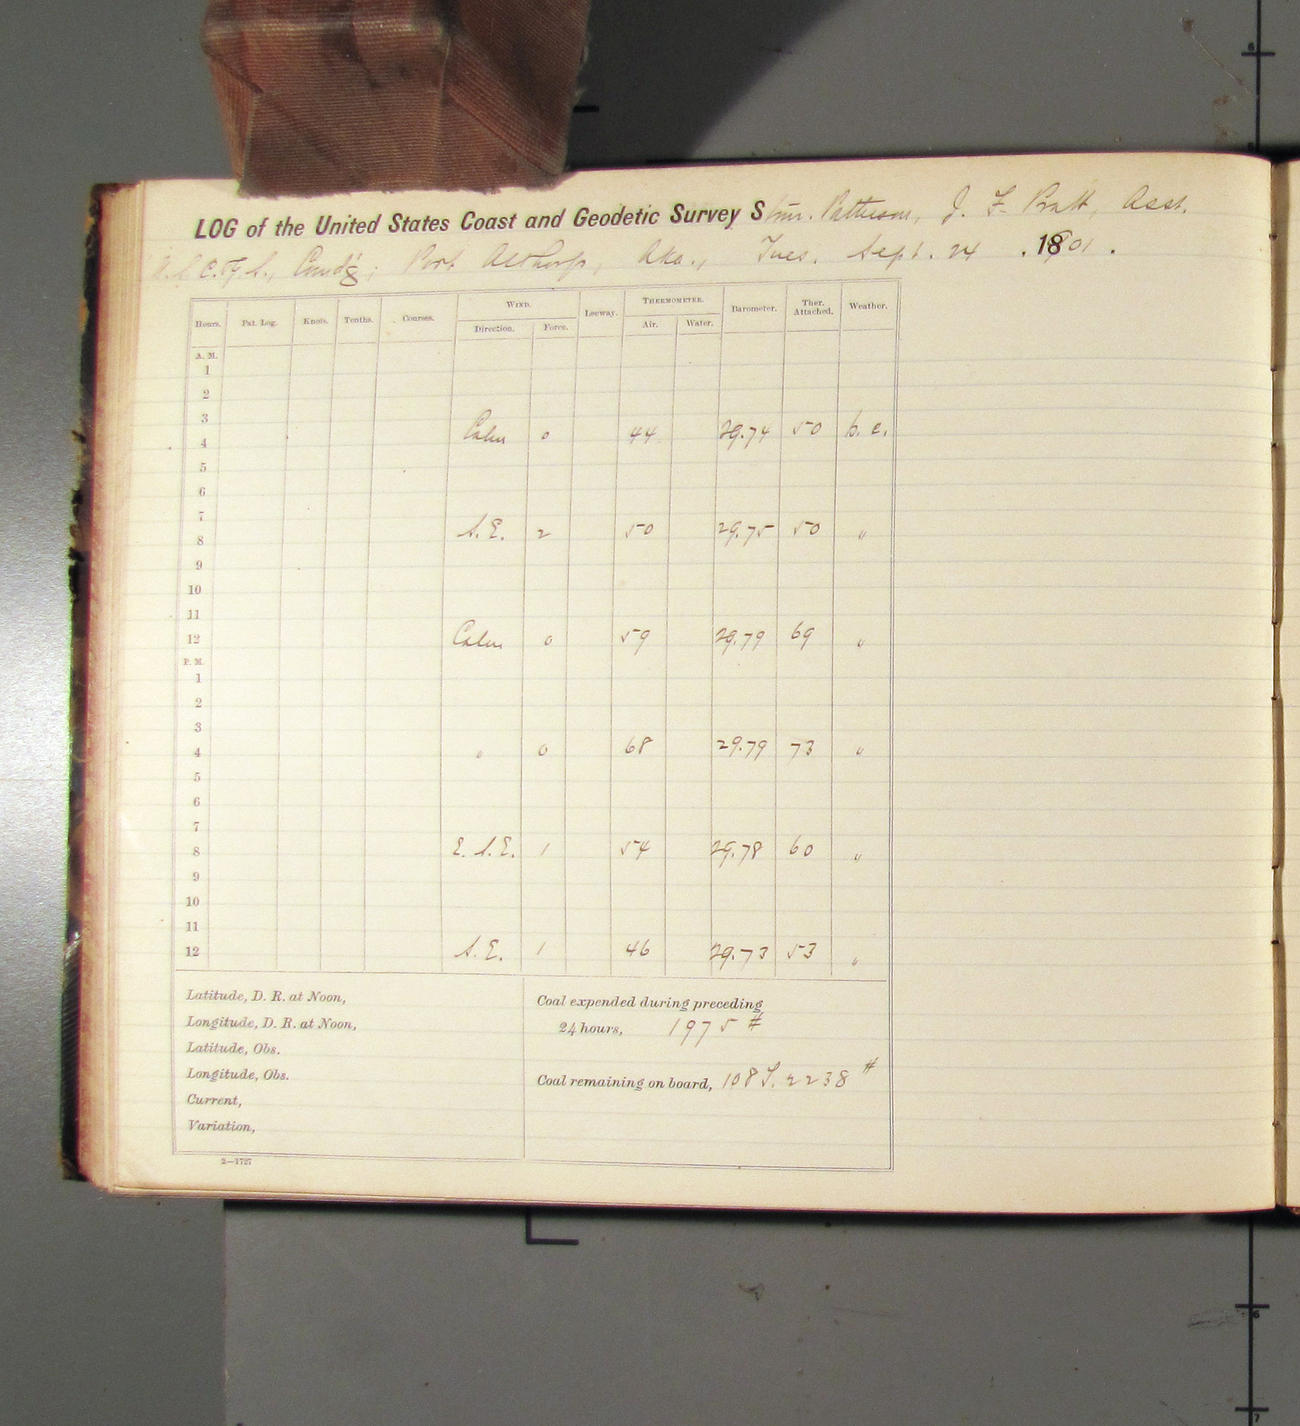 LOG of the United States Coast and Geodetic Survey Stmr. Patterson, J. F. Pratt, Asst.
U. S. C. & G. S., Comd'g, Port Althorp, Aka., Tues. Sept. 24 . 1901 .
Hours. Pat. Log. Knots. Tenths. Courses. WIND. Leeway. THERMOMETER. Barometer. Ther. Attached. Weather.
Direction. Force. Air. Water.
A. M.
1
2
3
4 Calm 0 44 29.74 50 b. c.
5
6
7
8 S. E. 2 50 29.75 50 "
9
10
11
12 Calm 0 59 29.79 69 "
P. M.
1
2
3
4 " 0 68 29.79 73 "
5
6
7
8 E. S. E. 1 54 29.78 60 "
9
10
11
12 S. E. 1 46 29.73 53 "
Latitude, D. R. at Noon,
Longitude, D. R. at Noon,
Latitude, Obs.
Longitude, Obs.
Current,
Variation,
Coal expended during preceding
24 hours, 1975 #
Coal remaining on board, 108 T. 2238 #
2—1727
6
6
7